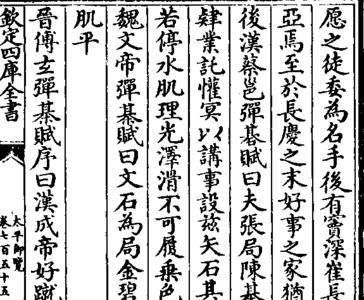 愿之徒委為名手後有竇深崔長
亞焉至於長慶之末好事之家猶
後漢蔡邕彈棊賦曰夫張局陳棊
肄業託懽冥以講事設茲矢石其
若停水肌理光澤滑不可履乗色
魏文帝彈棊賦曰文石為局金碧
肌平
晉傅玄彈棊賦序曰漢成帝好蹴
欽定四庫全書
太平御覽
卷七百五十五